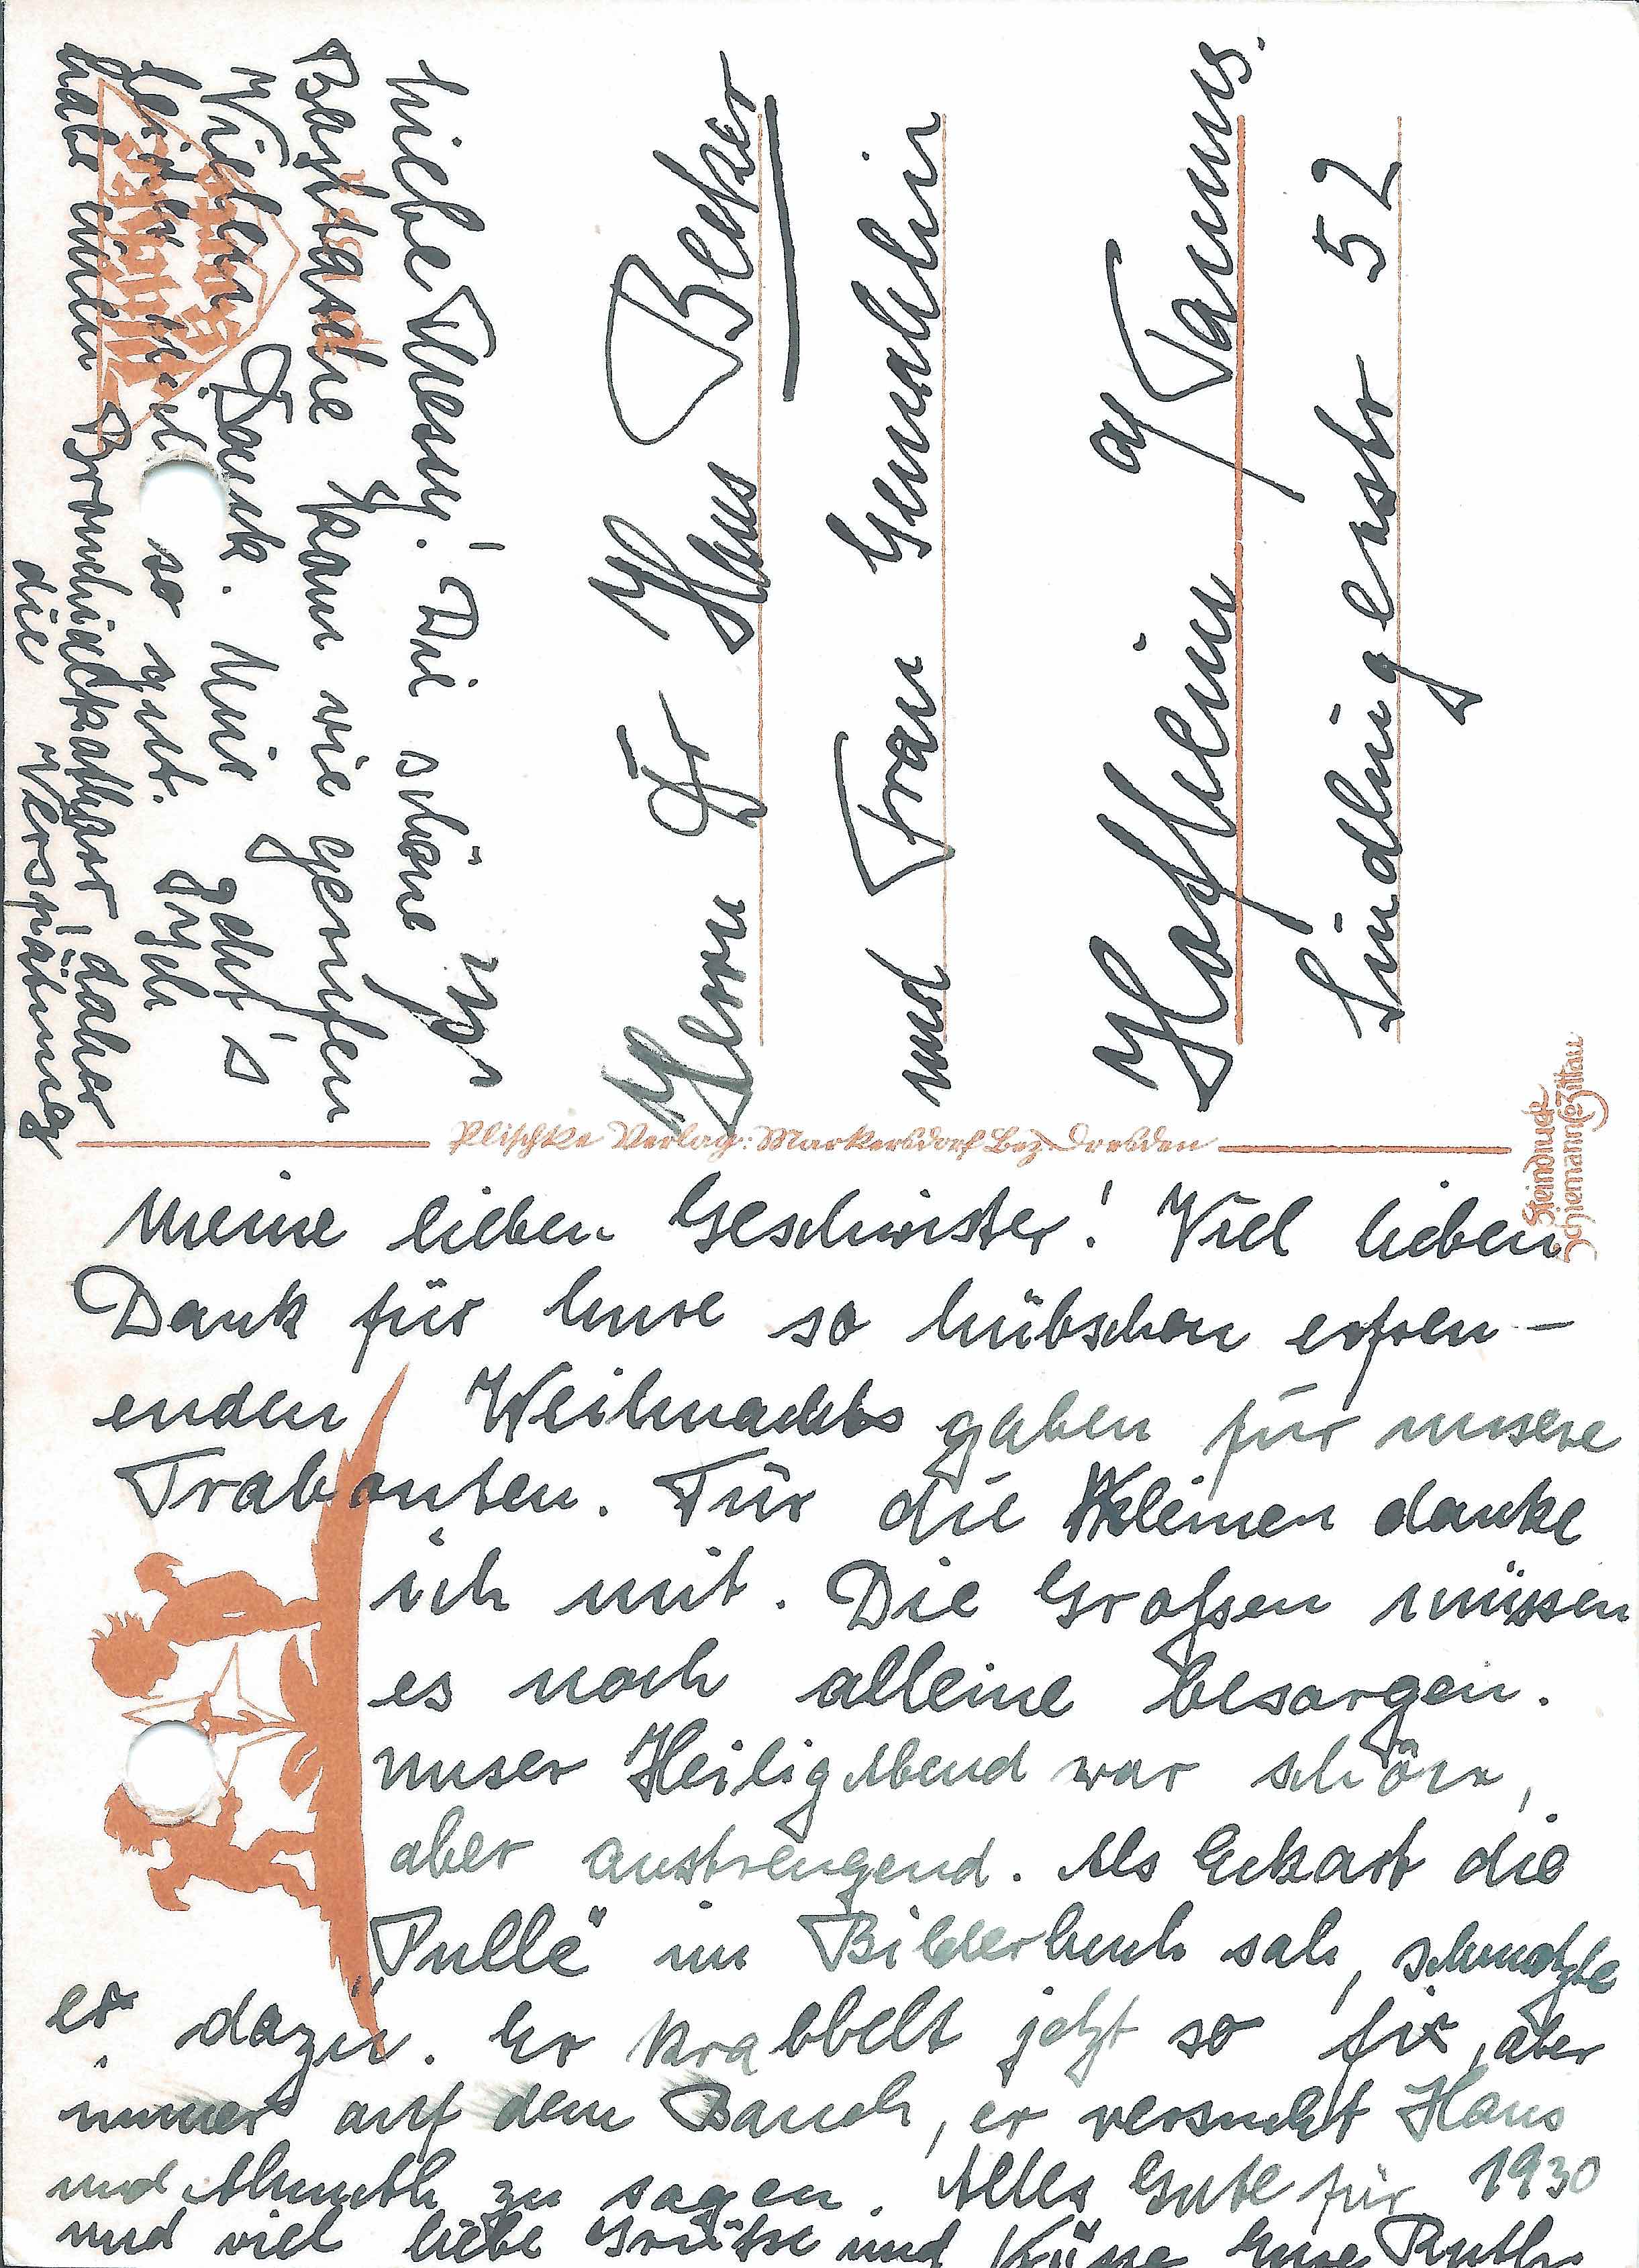 Meine lieben Geschwister! Viel lieben
Dank für Eure so hübschen erfreu-
enden Weihnachtsgaben für unsere
Trabanten. Für die Kleinen danke
ich mit. Die Großen müssen
es noch alleine besorgen.
Unser Heilig Abend war schön,
aber anstrengend. Als Eckart die
"Pulle" im Bilderbuch sah, schmatzte
er dazu. Er krabbelt jetzt so fix, aber
immer auf dem Bauch, er versucht Hans
und Almuth zu sagen. Alles Gute für 1930
und viel liebe Grüße und Küsse Eure Ruth.
Liebe! Die schöne
Basttasche kam wie gerufen
Vielen Dank. Mir geht's
leider so gut. Ich
habe einen Bronchialkatharr, daher
die Verspätung
Herrn Dr Hans Becker
und Frau Gemahlin
Hofheim a/Taunus.
Sindlingerstr 52
Plischke Verlag: Markersdorf Bez. Dresden
Steindruck
Schiemann Zittau